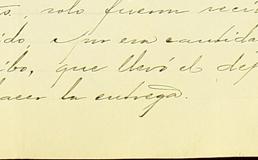 , solo fueron reci
ido, por esa cantida
ibo, que llevó el de
hacer la entrega.